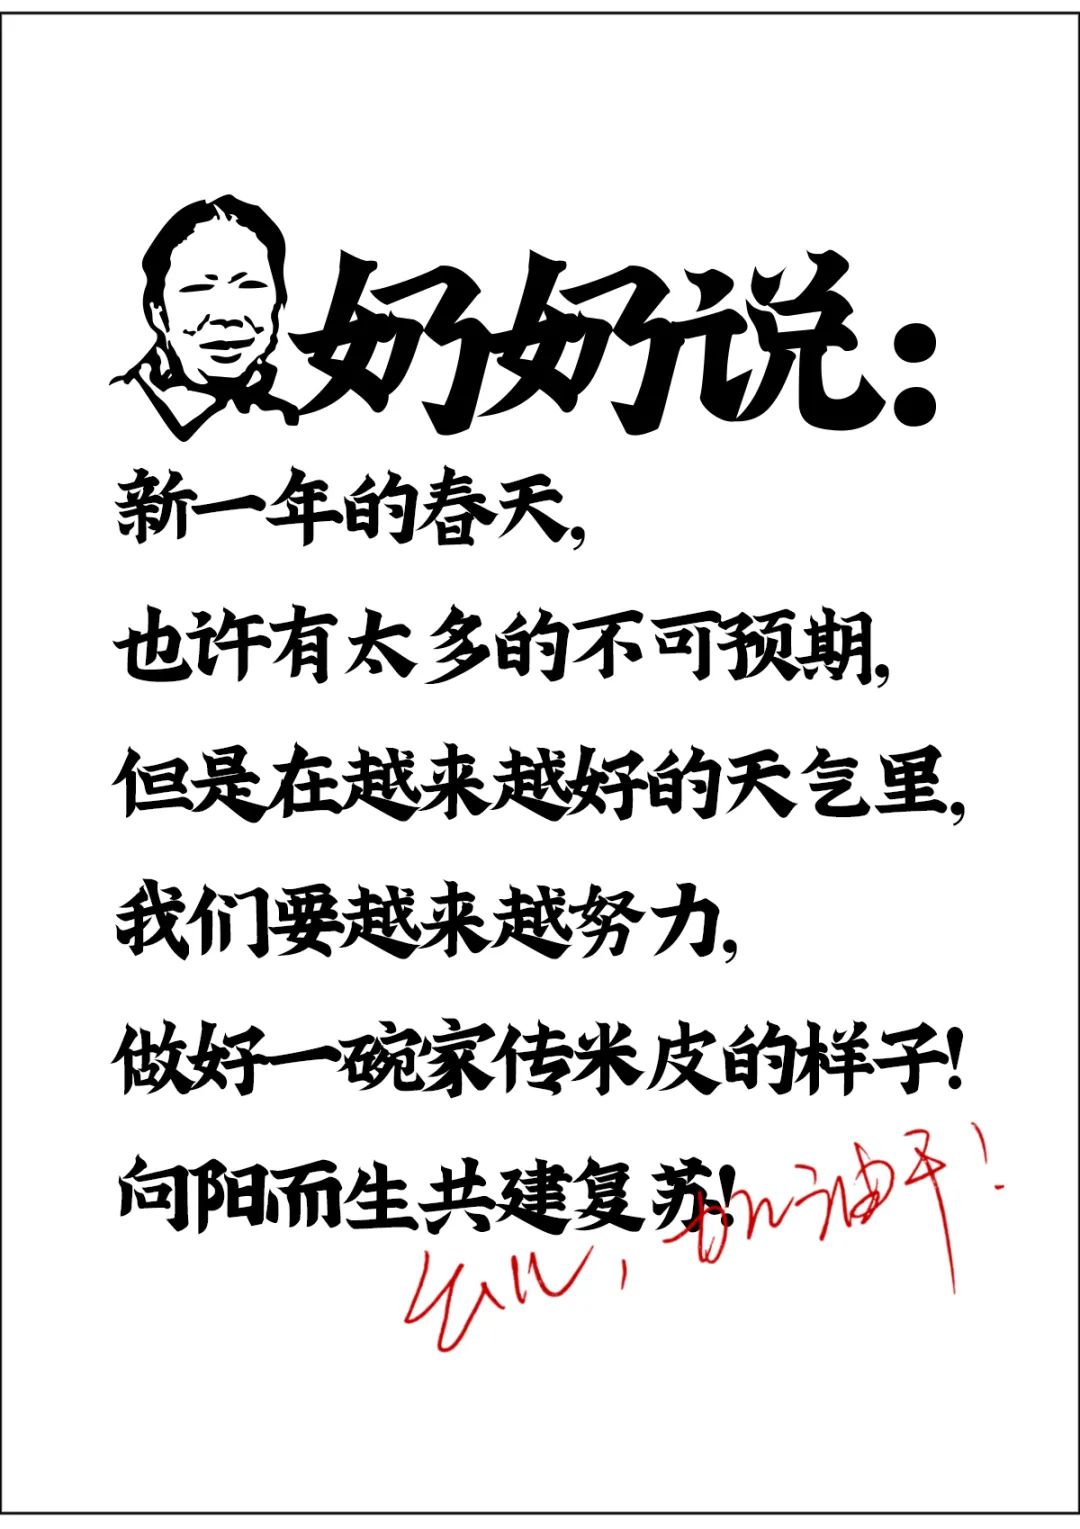 奶奶说：
新一年的春天,
也许有太多的不可预期,
但是在越来越好的天气里,
我们要越来越努力,
做好一碗家传米皮的样子!
向阳而生共建复苏!
加油干!